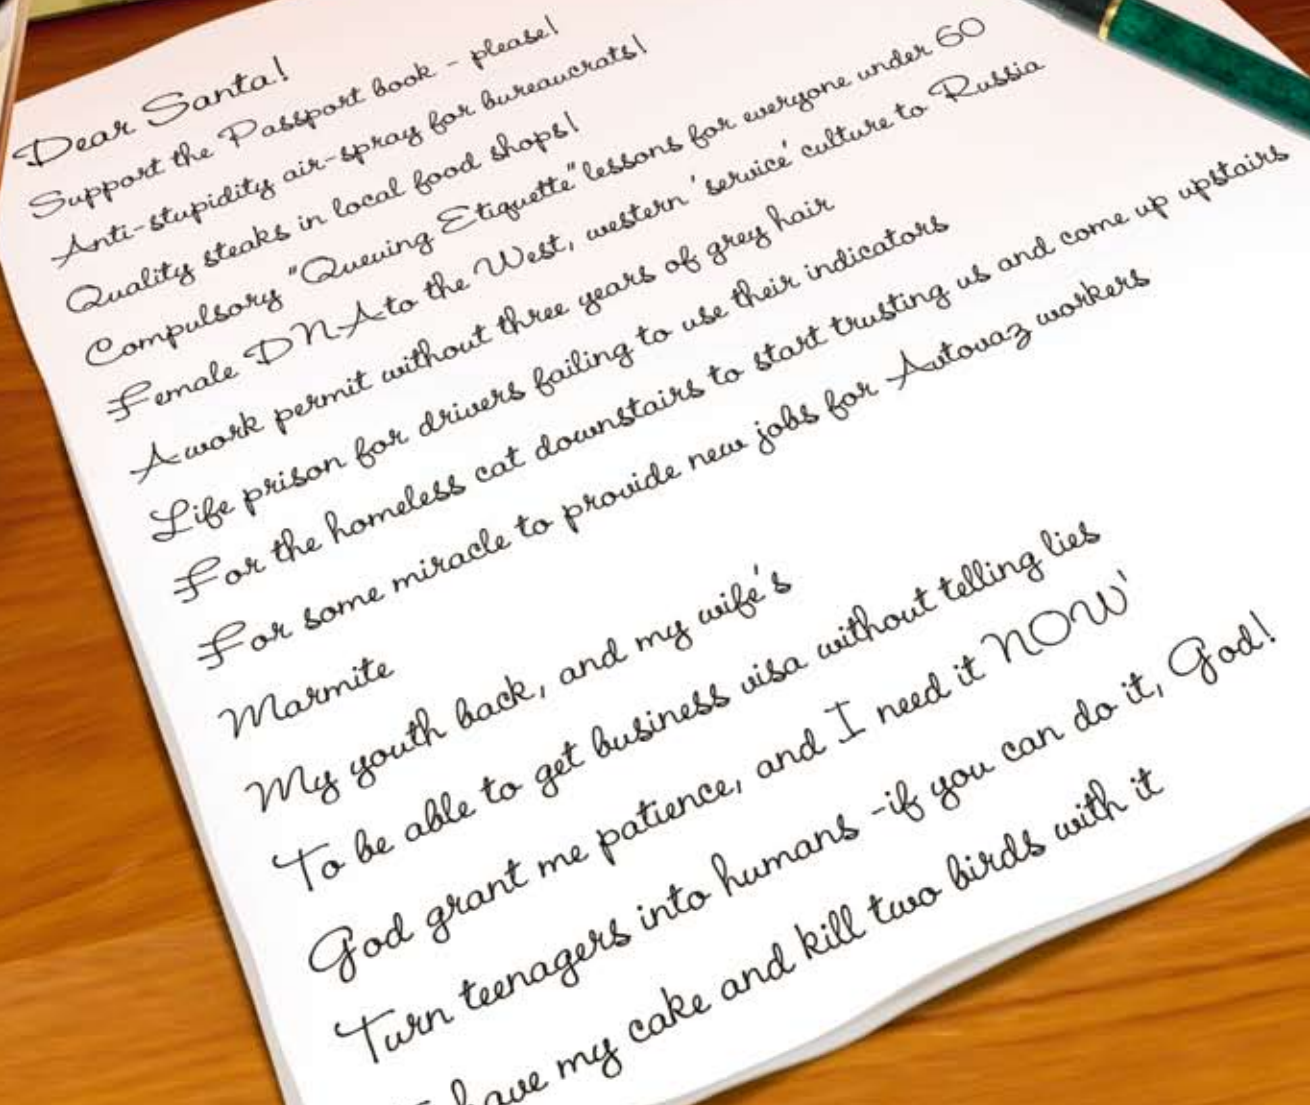 Dear Santa!
Support the Passport book - please!
Anti-stupidity air-spray for bureaucrats!
Quality steaks in local food shops!
Compulsory "Queuing Etiquette" lessons for everyone under 60
Female DNA to the West, western 'service' culture to Russia
A work permit without three years of grey hair
Life prison for drivers failing to use their indicators
For the homeless cat downstairs to start trusting us and come up upstairs
For some miracle to provide new jobs for Avtovaz workers
Marmite
My youth back, and my wife's
To be able to get business visa without telling lies
God grant me patience, and I need it NOW'
Turn teenagers into humans -if you can do it, God!
have my cake and kill two birds with it